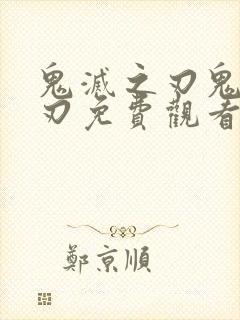 鬼滅之刃鬼
刃免費觀看
鄭京順